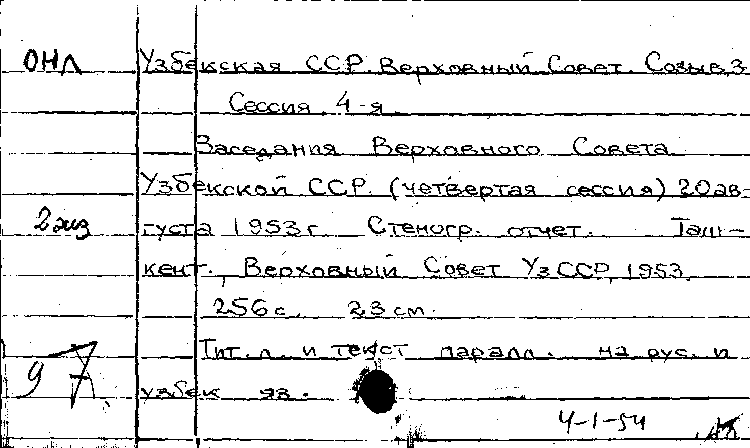 ОНЛ Узбекская ССР. Верховный Совет. Созыв 3.
Сессия 4-я.
Заседания Верховного Совета
Узбекской ССР. (четвертая сессия) 20 ав-
2 экз густа 1953 г. Стеногр. отчет. Таш-
кент, Верховный Совет УзССР, 1953.
256 с. 23 см.
Тит. л. и текст паралл. на рус. и
узбек яз.
4-1-54